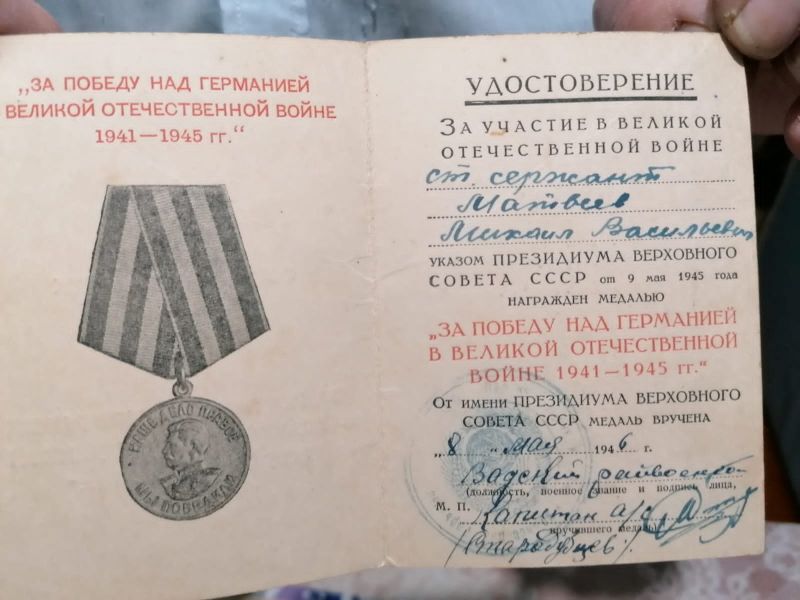 „ЗА ПОБЕДУ НАД ГЕРМАНИЕЙ
ВЕЛИКОЙ ОТЕЧЕСТВЕННОЙ ВОЙНЕ
1941—1945 гг.“
НАШЕ ДЕЛО ПРАВОЕ
МЫ ПОБЕДИЛИ
УДОСТОВЕРЕНИЕ
ЗА УЧАСТИЕ В ВЕЛИКОЙ
ОТЕЧЕСТВЕННОЙ ВОЙНЕ
ст. сержант
Матвеев
Михаил Васильевич
УКАЗОМ ПРЕЗИДИУМА ВЕРХОВНОГО
СОВЕТА СССР от 9 мая 1945 года
НАГРАЖДЕН МЕДАЛЬЮ
„ЗА ПОБЕДУ НАД ГЕРМАНИЕЙ
В ВЕЛИКОЙ ОТЕЧЕСТВЕННОЙ
ВОЙНЕ 1941—1945 гг.“
От имени ПРЕЗИДИУМА ВЕРХОВНОГО
СОВЕТА СССР МЕДАЛЬ ВРУЧЕНА
„8 „ мая 1946 г.
Вадский райвоенком
(должность, военное звание и подпись лица,
М. П. Капитан а/с
вручившего медаль)
/Стародубцев/.